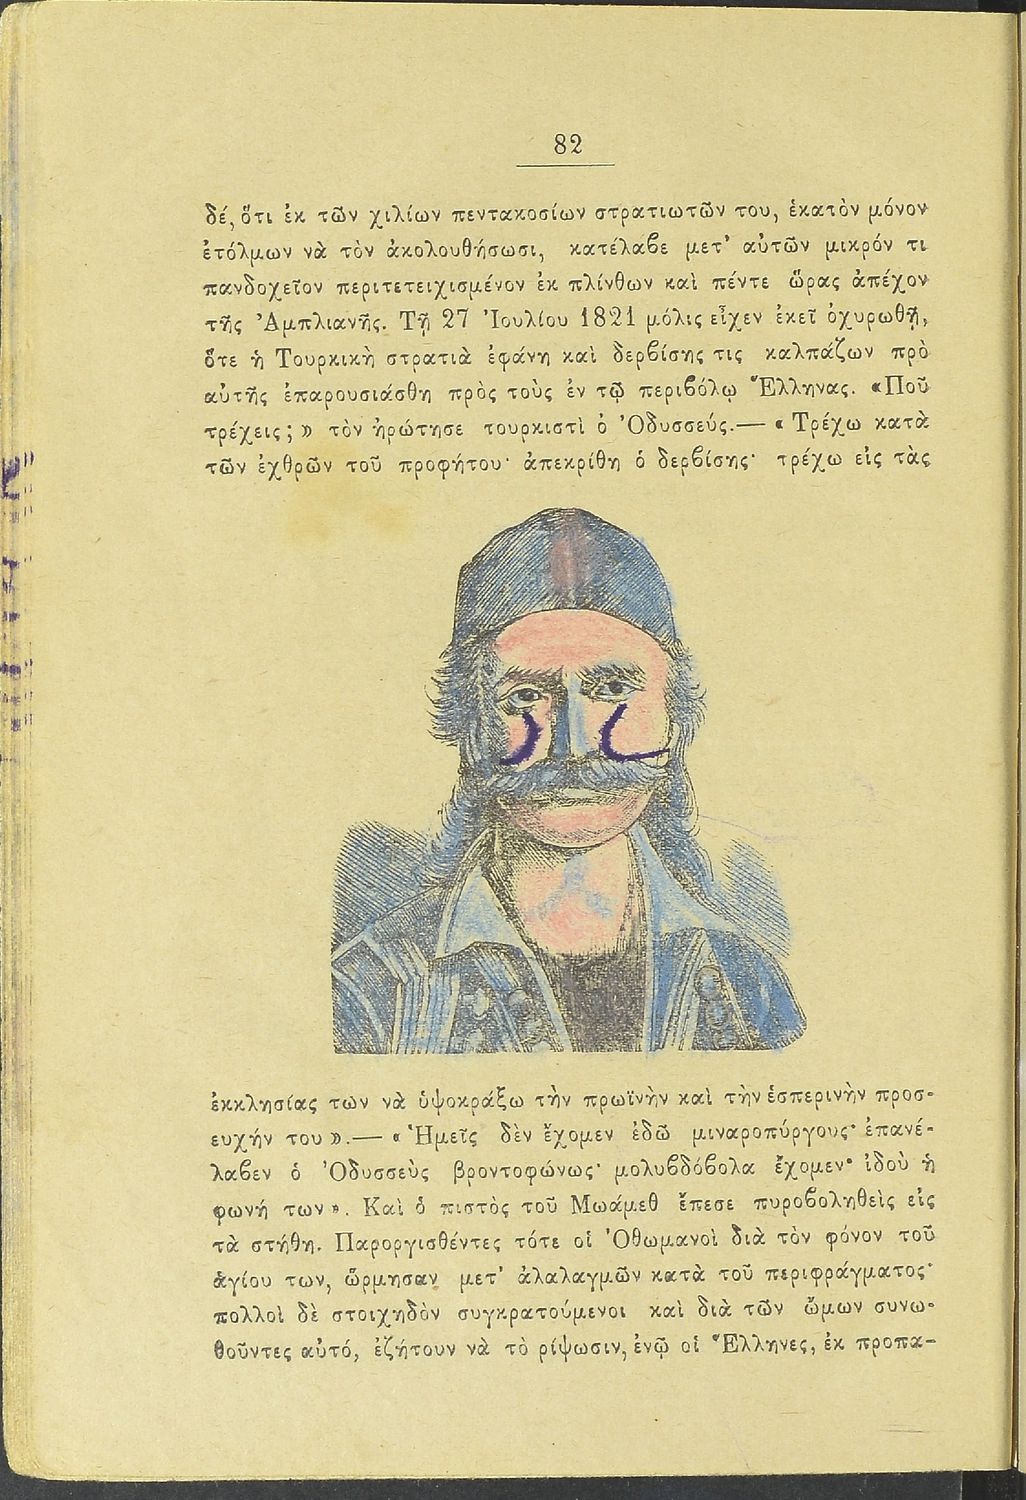 82
δέ, ὅτι ἐκ τῶν χιλίων πεντακοσίων στρατιωτῶν του, ἑκατὸν μόνον
ἐτόλμων νὰ τὸν ἀκολουθήσωσι, κατέλαβε μετ' αὐτῶν μικρόν τι
πανδοχεῖον περιτετειχισμένον ἐκ πλίνθων καὶ πέντε ὥρας ἀπέχον
τῆς Ἀμπλιανῆς. Τῇ 27 Ἰουλίου 1821 μόλις εἶχεν ἐκεῖ ὀχυρωθῆ,
ὅτε ἡ Τουρκικὴ στρατιὰ ἐφάνη καὶ δερβίσης τις καλπάζων πρὸ
αὐτῆς ἐπαρουσιάσθη πρὸς τοὺς ἐν τῷ περιβόλῳ Ἕλληνας. «Ποῦ
τρέχεις; » τὸν ἠρώτησε τουρκιστὶ ὁ Ὀδυσσεύς.— « Τρέχω κατὰ
τῶν ἐχθρῶν τοῦ προφήτου· ἀπεκρίθη ὁ δερβίσης· τρέχω εἰς τὰς
ἐκκλησίας των νὰ ὑψοκράξω τὴν πρωϊνὴν καὶ τὴν ἑσπερινὴν προσ-
ευχήν του ».— « Ἡμεῖς δὲν ἔχομεν ἐδῶ μιναροπύργους· ἐπανέ-
λαβεν ὁ Ὀδυσσεὺς βροντοφώνως· μολυβδόβολα ἔχομεν· ἰδοὺ ἡ
φωνή των ». Καὶ ὁ πιστὸς τοῦ Μωάμεθ ἔπεσε πυροβοληθεὶς εἰς
τὰ στήθη. Παροργισθέντες τότε οἱ Ὀθωμανοὶ διὰ τὸν φόνον τοῦ
ἁγίου των, ὥρμησαν μετ' ἀλαλαγμῶν κατὰ τοῦ περιφράγματος·
πολλοὶ δὲ στοιχηδὸν συγκρατούμενοι καὶ διὰ τῶν ὤμων συνω-
θοῦντες αὐτό, ἐζήτουν νὰ τὸ ρίψωσιν, ἐνῷ οἱ Ἕλληνες, ἐκ προπα-